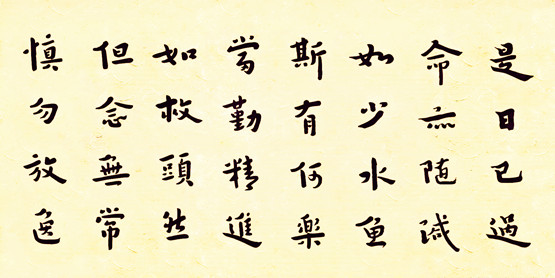 是日已過
命亦隨減
如少水魚
斯有何樂
當勤精進
如救頭然
但念無常
慎勿放逸